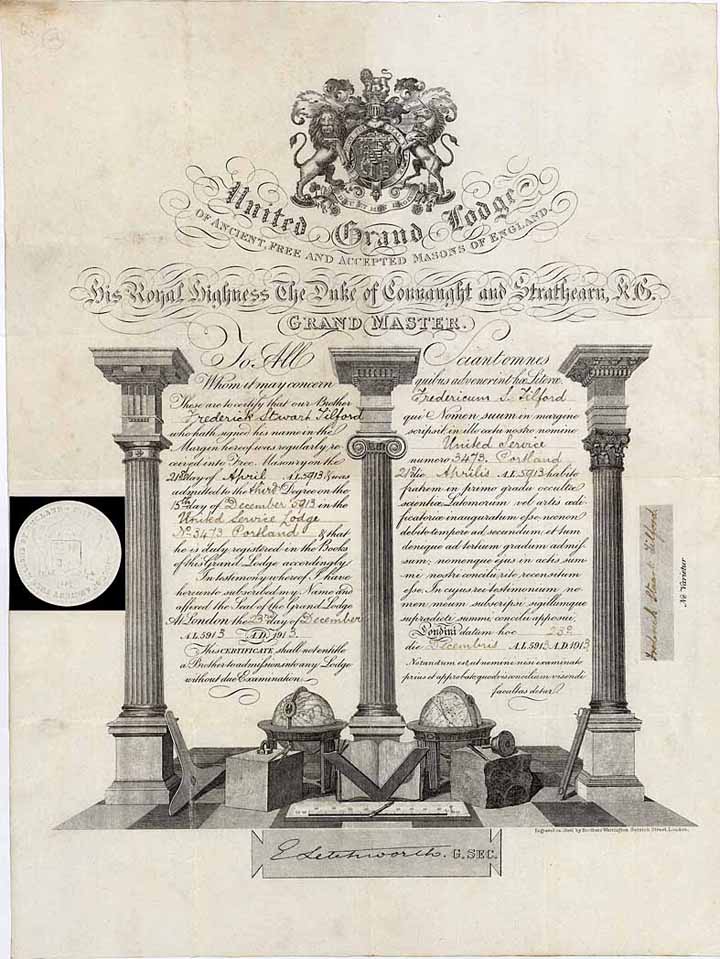 United Grand Lodge
OF ANCIENT, FREE AND ACCEPTED MASONS OF ENGLAND.
His Royal Highness The Duke of Connaught and Strathearn, K.G.
GRAND MASTER.
To All
Whom it may concern
These are to certify that our Brother
Frederick Stewart Tilford
who hath signed his name in the
Margin hereof was regularly re
ceived into Free Masonry on the
21st day of April A.L. 5913 & was
admitted to the third Degree on the
15th day of December 5913 in the
United Service Lodge
No. 3473 Portland & that
he is duly registered in the Books
of this Grand Lodge accordingly
In testimony whereof I have
hereunto subscribed my Name and
affixed the Seal of the Grand Lodge
At London the 23rd day of December
A.L. 5913 A.D. 1913.
THIS CERTIFICATE shall not entitle
a Brother to admission into any Lodge
without due Examination.
Sciant omnes
quibus advenerint hæ Literæ
Fredericum S. Tilford
qui Nomen suum in margine
scripsit in illo cœtu nostro nomine
United Service
numero 3473. Portland
21o die Aprilis A.L. 5913 habito
fratrem in primo gradu occultæ
scientiæ Latomorum vel artis ædi
ficatoriæ inauguratum esse necnon
debito tempore ad secundum et tum
denique ad tertium gradum admis
sum; nomenque ejus in actis sum
mi nostri concilii rite recensitum
esse. In cujus rei testimonium no
men meum subscripsi sigillumque
supradicti summi concilii apposui.
Londini datum hoc 23o
die Decembris A.L. 5913 A.D. 1913
Notandum est, at nemini nisi examinato
prius et approbato quodvis concilium visendi
facultas detur.
Frederick Stewart Tilford
Ne Varietur
Brothers Warrington Garrick Street, London.
E Letchworth. G. SEC.